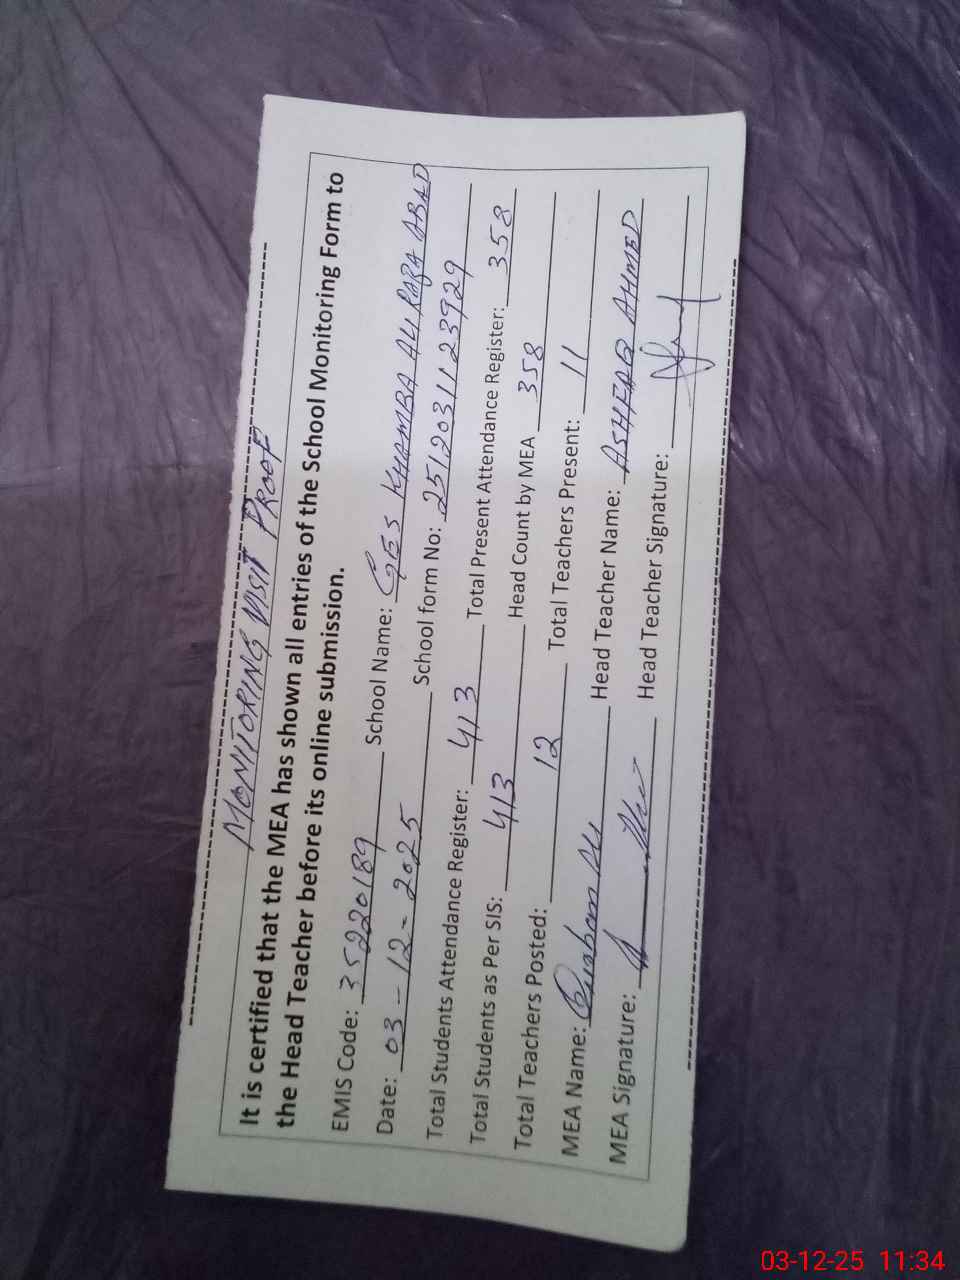 MONITORING VISIT PROOF
It is certified that the MEA has shown all entries of the School Monitoring Form to
the Head Teacher before its online submission.
EMIS Code: 35220189 School Name: GES KHAMBA ALI RAZA ABAD
Date: 03-12-2025 School form No: 251203112 3929
Total Students Attendance Register: 413 Total Present Attendance Register: 358
Total Students as Per SIS: 413 Head Count by MEA 358
Total Teachers Posted: 12 Total Teachers Present: 11
MEA Name: Ali Head Teacher Name: ASHFAQ AHMED
MEA Signature: Head Teacher Signature:
03-12-25 11:34